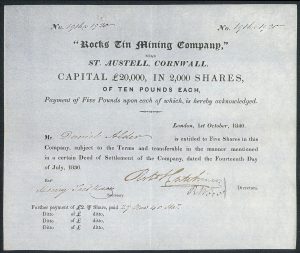 No. 1916 a 1920 No. 1916 a 1920
"Rocks Tin Mining Company,"
NEAR
ST. AUSTELL, CORNWALL.
CAPITAL £20,000, IN 2,000 SHARES,
OF TEN POUNDS EACH,
Payment of Five Pounds upon each of which, is hereby acknowledged.
London, 1st October, 1836.
Mr. Daniel Alder is entitled to Five Shares in this
Company, subject to the Terms and transferable in the manner mentioned
in a certain Deed of Settlement of the Company, dated the Fourteenth Day
of July, 1836.
For
Secretary
Directors.
Further payment of £2 ₩ Share, paid
Ditto of £ ditto.
Ditto of £ ditto.
Ditto of £ ditto.